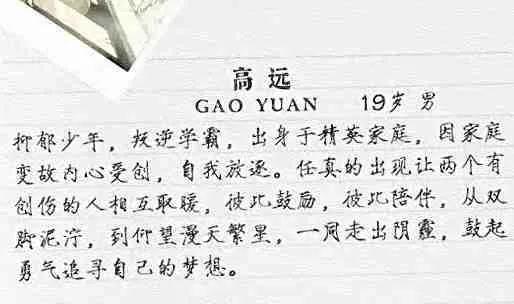 高远
GAO YUAN 19岁 男
抑郁少年，叛逆学霸，出身于精英家庭，因家庭
变故内心受创，自我放逐。任真的出现让两个有
创伤的人相互取暖，彼此鼓励，彼此陪伴，从双
脚泥泞，到仰望漫天繁星，一同走出阴霾，鼓起
勇气追寻自己的梦想。